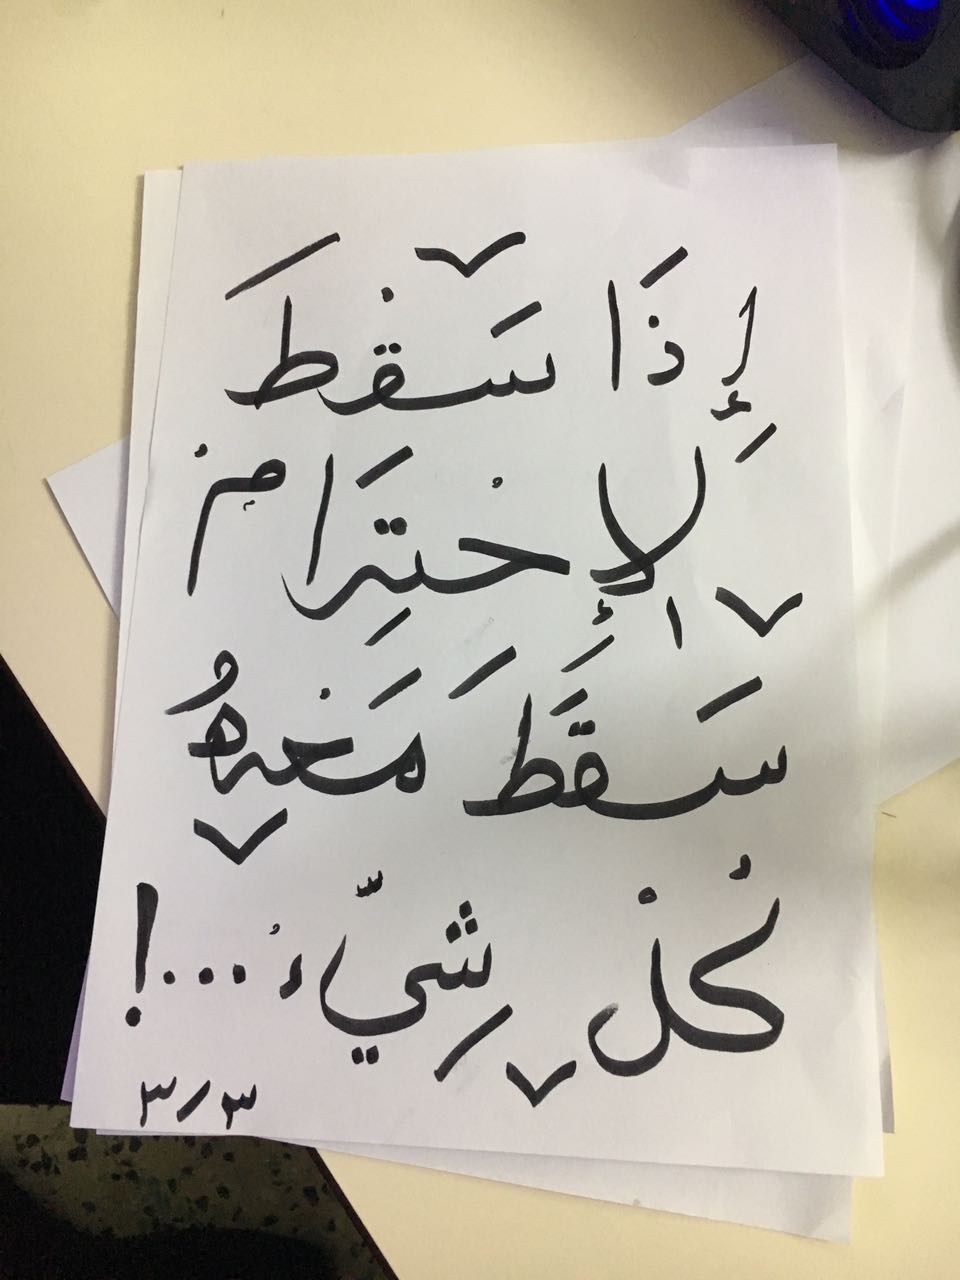 إِذَا سَقَطَ
الإِحتِرَام
سَقَطَ مَعَهُ
كُل شِيّءُ...!
٣/٣